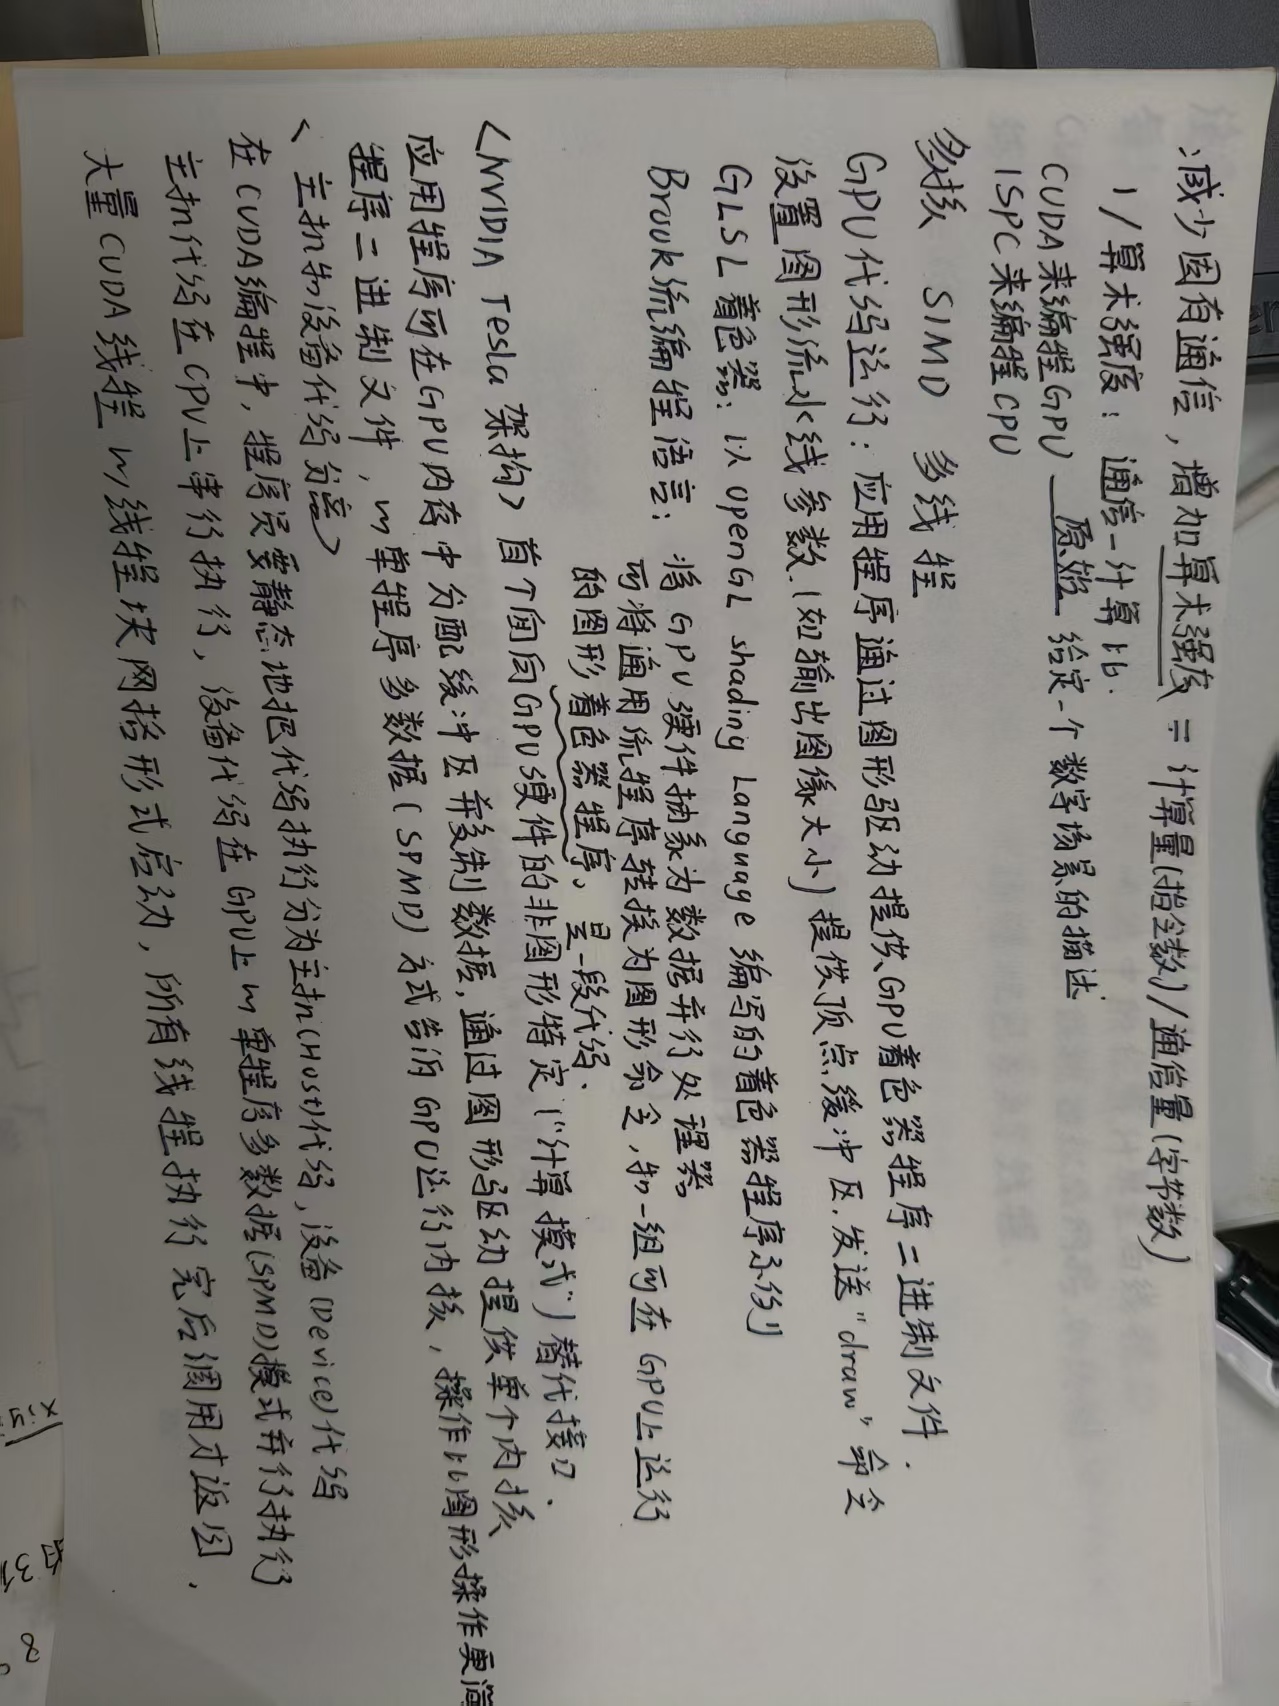 :减少固有通信,增加算术强度 = 计算量(指令数)/通信量(字节数)
1/算术强度: 通信-计算比.
CUDA来编程GPU 原始 给定一个数字场景的描述
ISPC来编程CPU
多核 SIMD 多线程
GPU代码运行: 应用程序通过图形驱动提供GPU着色器程序二进制文件.
设置图形流水线参数(如输出图像大小)提供顶点缓冲区.发送"draw"命令
GLSL着色器: 以OpenGL shading Language编写的着色器程序示例
Brook流编程语言: 将GPU硬件抽象为数据并行处理器
可将通用流程序转换为图形命令,和一组可在GPU上运行
的图形着色器程序。是一段代码.
<NVIDIA Tesla 架构> 首个面向GPU硬件的非图形特定("计算模式")替代接口.
应用程序可在GPU内存中分配缓冲区并复制数据,通过图形驱动提供单个内核
程序二进制文件,以单程序多数据(SPMD)方式告诉GPU运行内核,操作比图形操作更
<主机和设备代码分离>
在CUDA编程中,程序员要静态地把代码执行分为主机(Host)代码,设备(Device)代码
主机代码在CPU上串行执行,设备代码在GPU上以单程序多数据(SPMD)模式并行执行
大量CUDA线程以线程块网格形式启动,所有线程执行完后调用才返回.
xiy
31
8